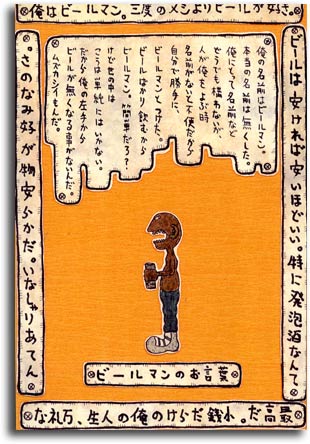 俺はビールマン。三度のメシよりビールが好き。
ビールは安ければ安いほどいい。特に発泡酒なんて
最高だ。小銭だらけの俺の人生、万札な
んてありゃしない。だから安物が好みなのさ。
俺の名前はビールマン。
本当の名前は無くした。
俺にとって名前など
どうでも構わないが
人が俺をよぶ時
名前がないと不便だから
自分で勝手に、
ビールマンとつけた。
ビールばかり飲むから
ビールマン。簡単だろ？
けど世の中は
こう単純にはいかない。
だから俺の左手から
ビールが無くなる事がないんだ。
ムズカシイもんだ。
ビールマンのお言葉